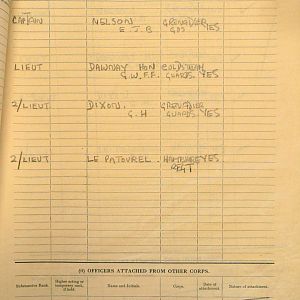 CAPTAIN NELSON GRENADIER
E. J. B GDS YES
LIEUT DAWNAY HON COLDSTREAM
G.W.F.F. GUARDS YES
2/LIEUT DIXON. GRENADIER
G. H GUARDS YES
2/LIEUT LE PATOUREL. HAMPSHIRE YES
REGT
(c) OFFICERS ATTACHED FROM OTHER CORPS.
Substantive Rank. Higher acting or temporary rank, if held. Name and Initials. Corps. Date of attachment. Nature of attachment.